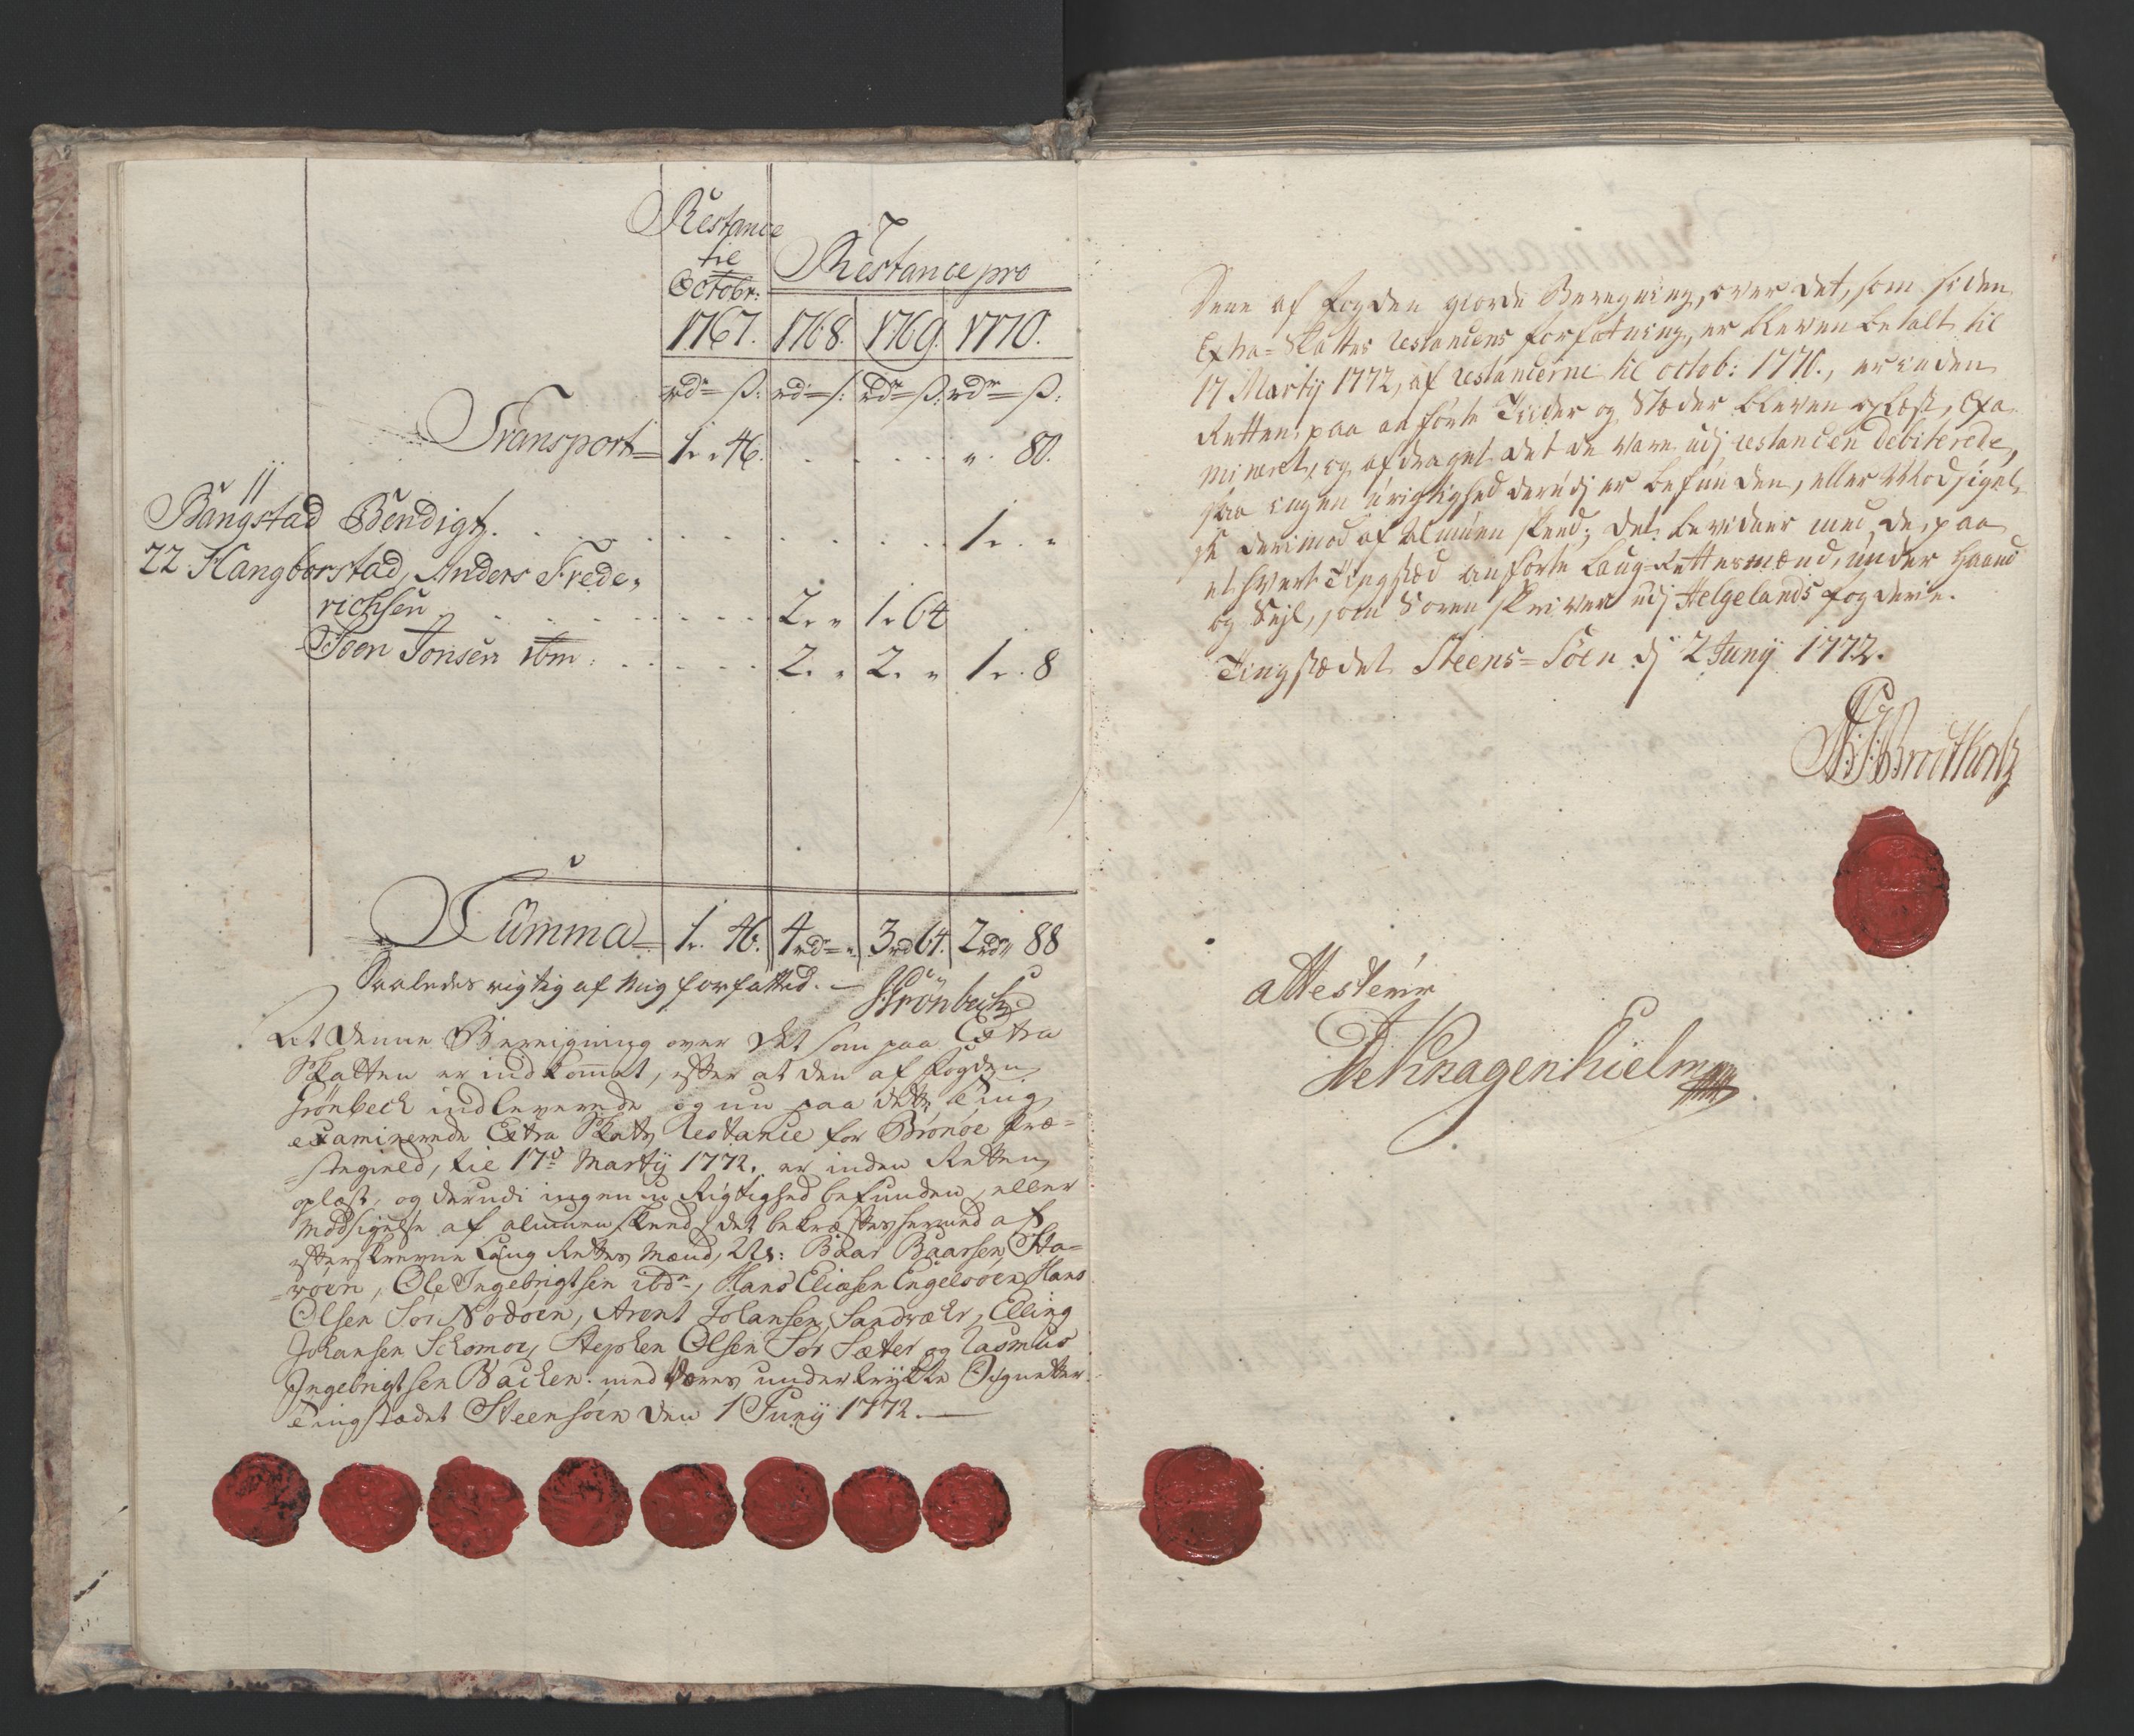 Restance
til
Octobr:
Restance pro
1767. 1768. 1769. 1770.
rd – ß: rd – ß: rd – ß: rd – ß:
Transport = 1 " 46. " 80.
Bangstad Bendigt. 1 "
22 Hangborstad, Anders Frede,
richsen 2. " 1 " 64
Joen Jonsen ibm: 2. " 2. " 1 " 8
Summa = 1 " 46. 4 rd " 3 rd 64. 2 rd " 88
Saaledes rigtig af Mig forfatted. —
Grönbech
At denne Beregning over det som paa Extra
Skatten er indkommet, efter at den af Fogden
Grönbech indleverede og nu paa dette Ting
examinerede Extra Skatts Restance for Brönöe Præ=
stegield, til 17de Martÿ 1772. er inden Retten
oplæst, og derudi ingen u Rigtighed befunden, eller
Modsigelse af almuen skeed, det bekræftes hermed af
efterskrevne Laug Rettes Mænd, Baar Baarsen
Ole Ingebrigtsen ibdm, Hans Eliæsen Hans
Olsen Sör Arent Johansen Sandvær, Elling
Johansen Stephen Olsen Sör Sæter og Rasmus
Ingebrigtsen Backen. med vores undertrykte Signetter.
Tingstædet Steensöen den 1 Junÿ 1772. —
Dene af Fogden giorde Beregning, over det, som siden
Extra = Skattes restancens forfatning, er bleven betalt til
17 Martÿ 1772, af restancerne til octob: 1770., er inden
Retten, paa anförte Tiider og Stæder bleven oplæst, Exa-
mineret, og afdraget det de vare udj restancen debiterede,
saa ingen urigtighed derudj er befunden, eller Modsigel-
se derimod af Almuen skeed; det bevidner med de paa
ethvert Tingstæd anförte Laug-Rettesmænd, under Haand
og Sejl, som Soren skriver udj Helgelands fogderie.
Tingstædet Steens = Söen dj 2 Junÿ 1772.
attesterer
De Knagenhielm